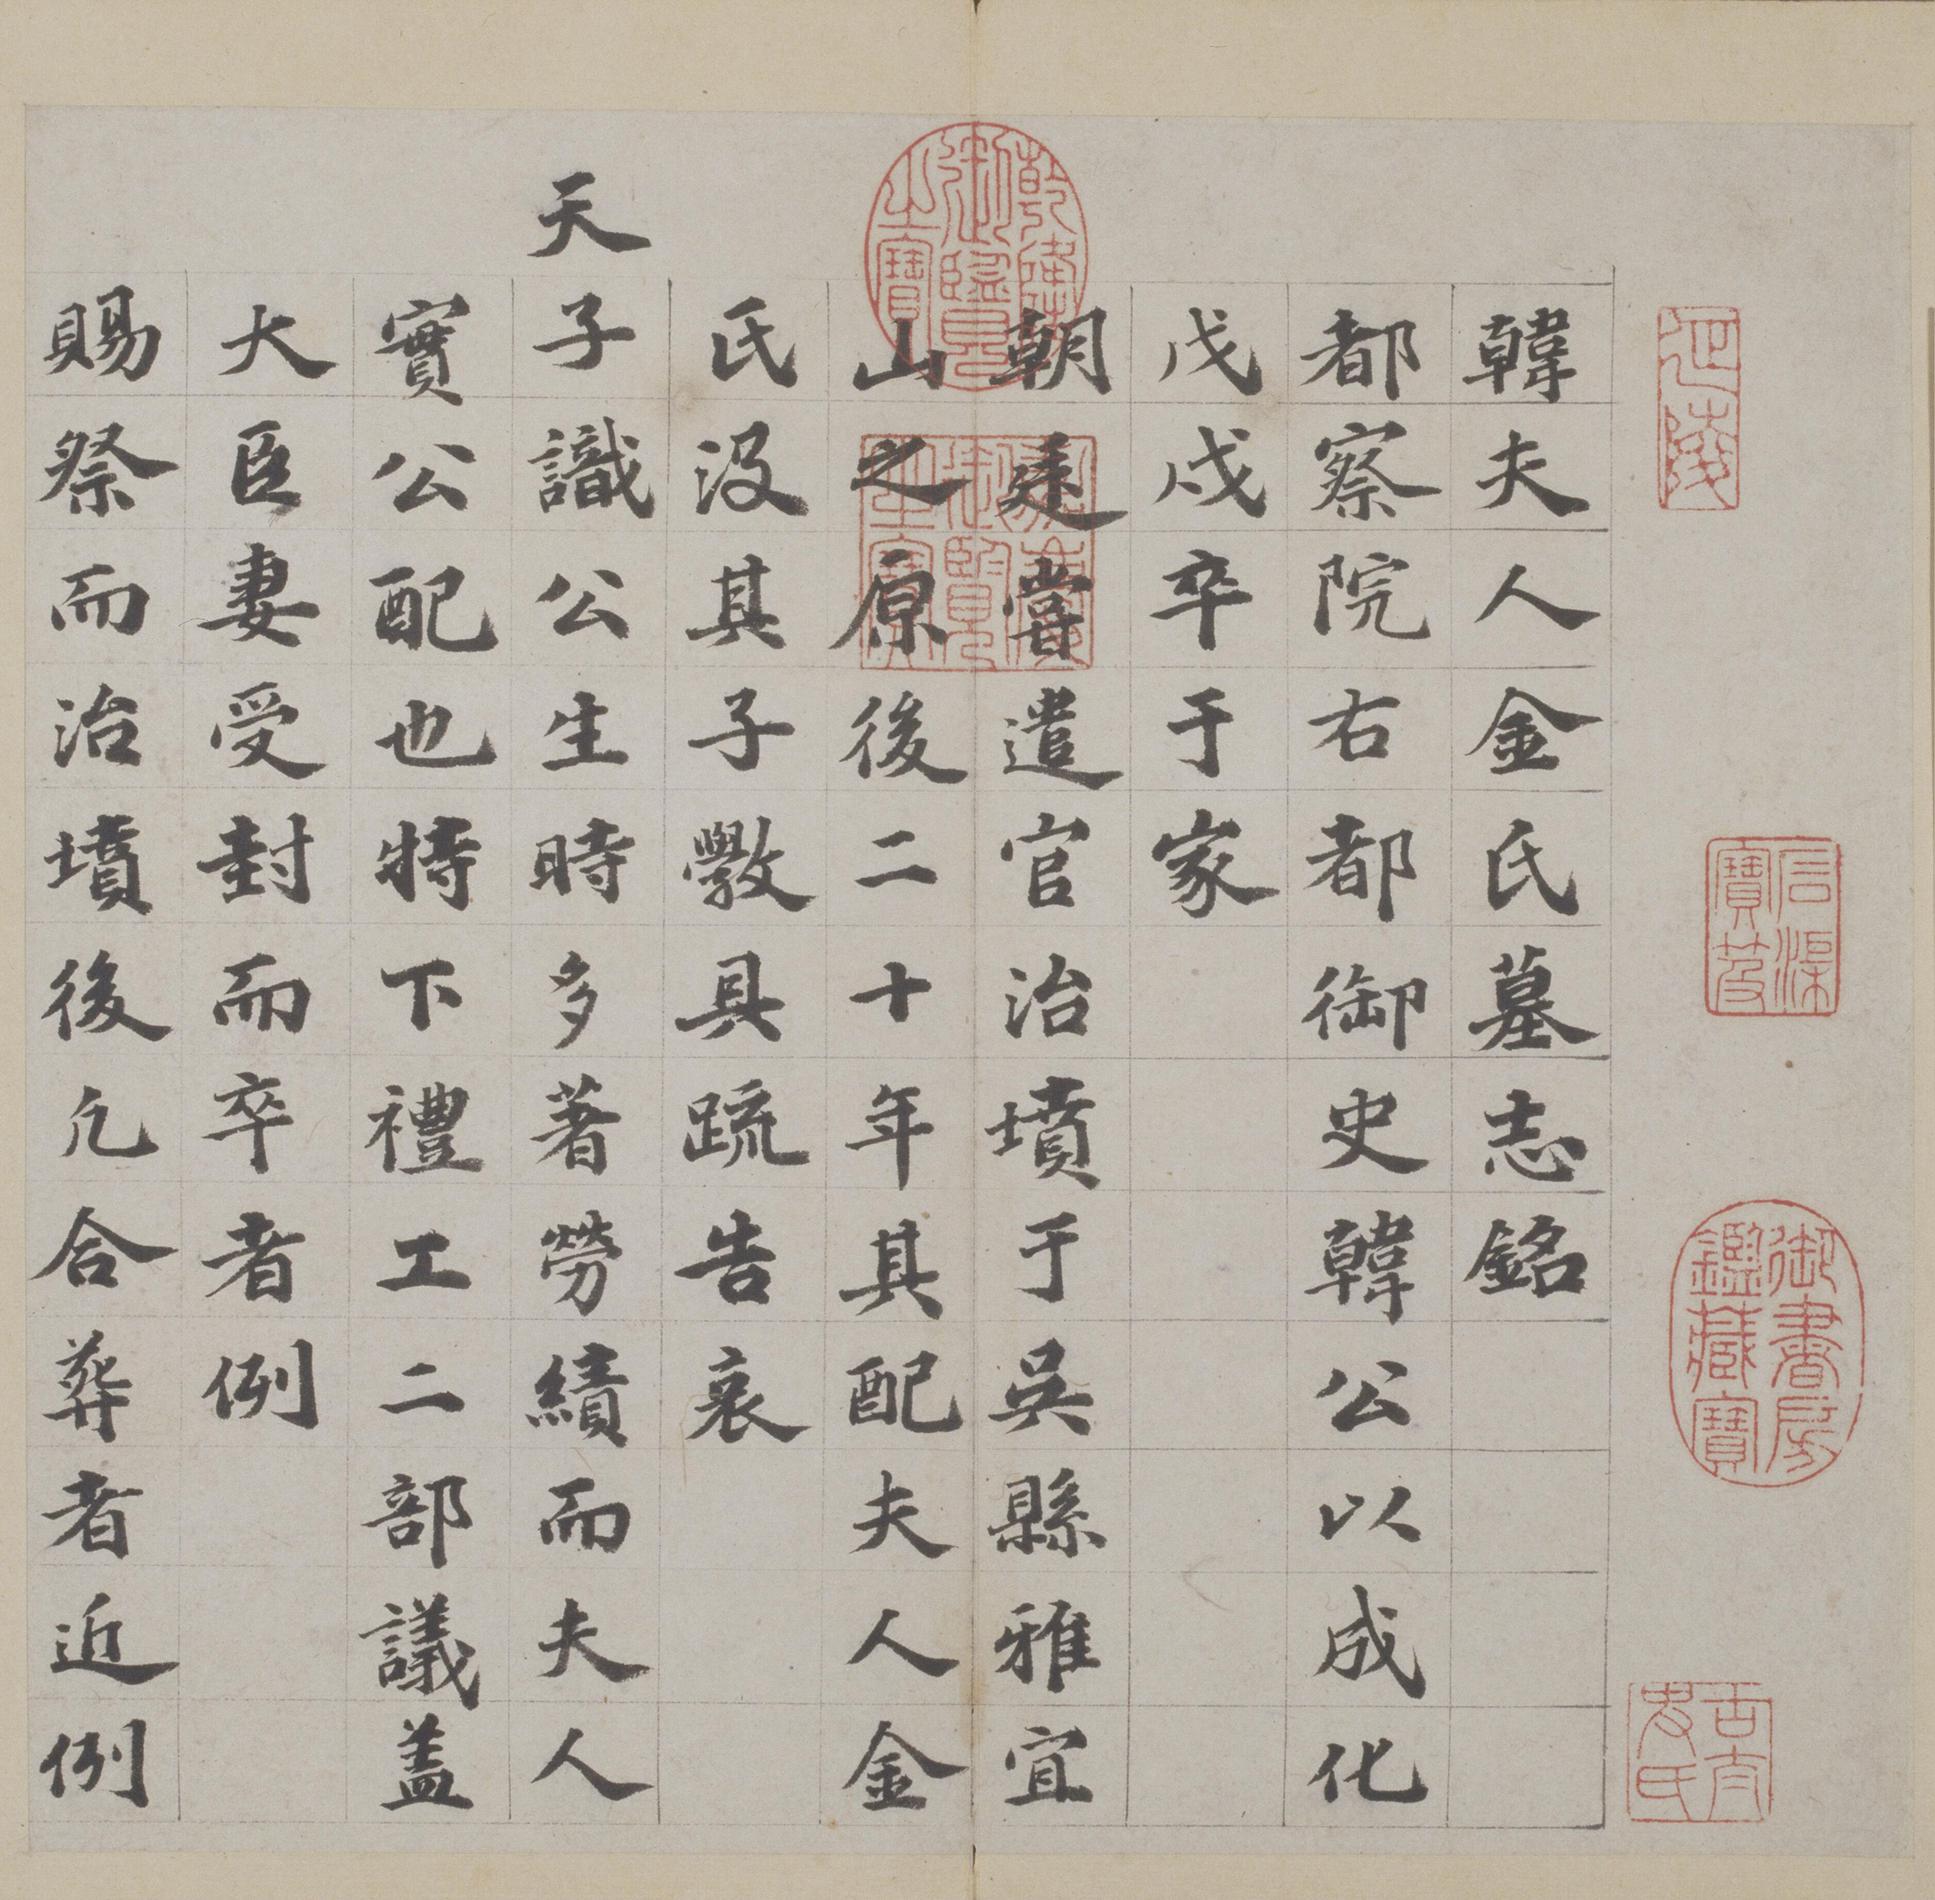 延陵
石渠寶笈
御書房鑑藏寶
古太史氏
韓夫人金氏墓志銘
都察院右都御史韓公以成化
戊戌卒于家
朝廷嘗遣官治墳于吳縣雅宜
山之原後二十年其配夫人金
氏沒其子斅具疏告哀
天子識公生時多著勞績而夫人
實公配也特下禮工二部議盖
大臣妻受封而卒者例
賜祭而治墳後凢合葬者近例
乾隆御覽之寶
嘉慶御覽之寶